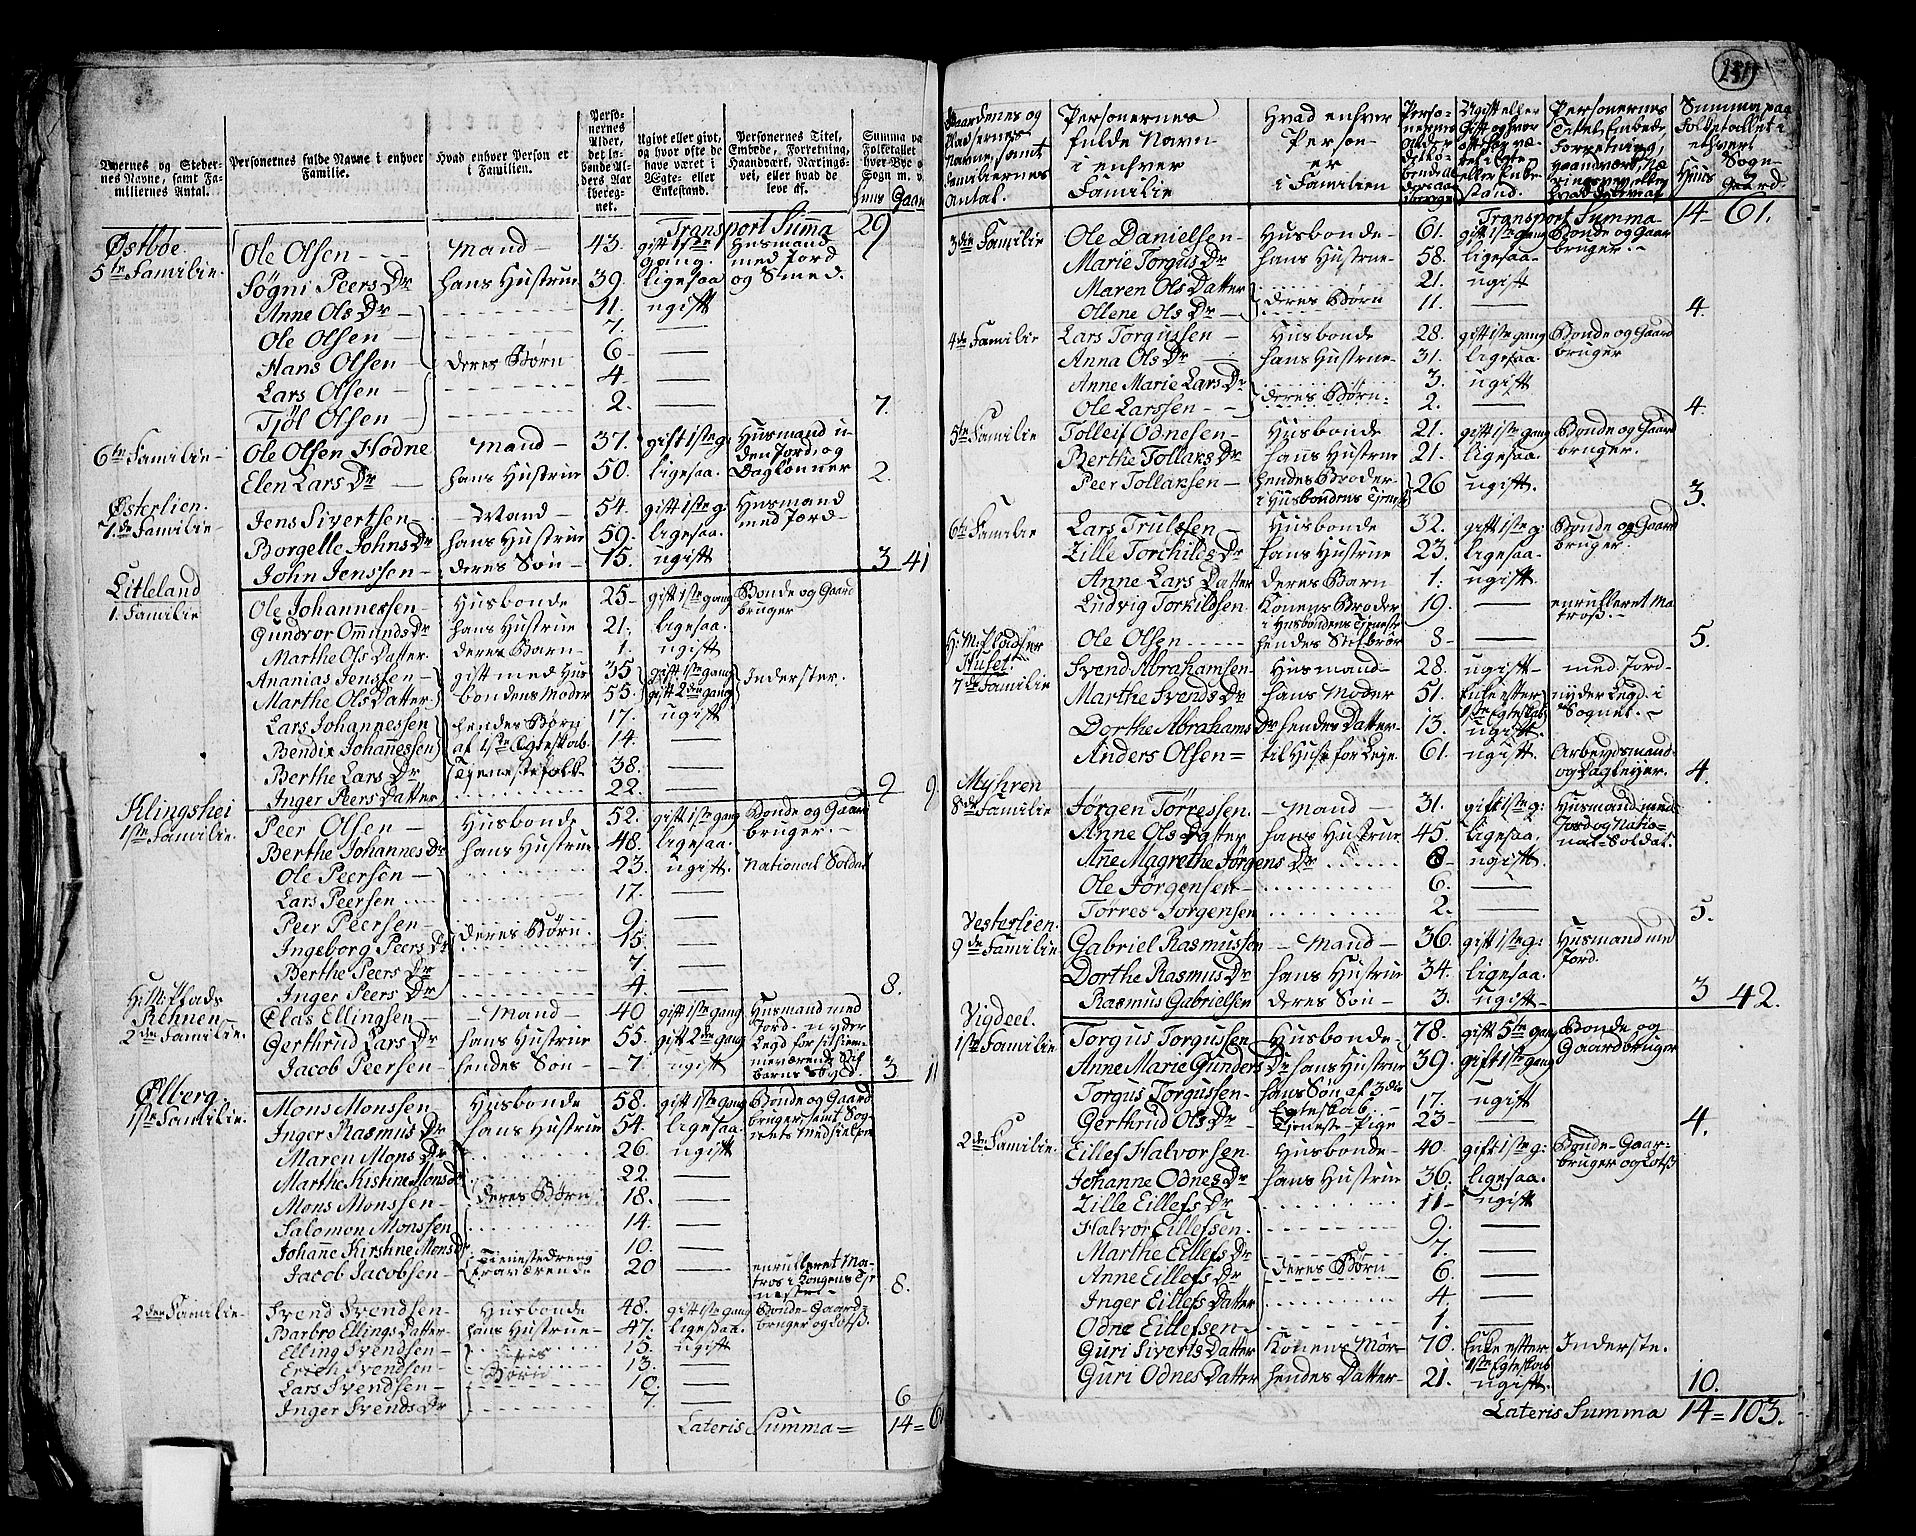 Personernes fulde Navne i enhver Familie.
Hvad enhver Person er i Familien.
Transport Summa 29
Østbøe.
5te Familie.
Ole Olsen - Mand - 43. gift 1ste gang. Husmand med Jord og Smed.
Søgni Peers Dr hans Hustrue 39. ligesaa
Anne Ols Dr - 11. ugift
Ole Olsen - 7. —
Hans Olsen - deres Børn 6 —
Lars Olsen - 4. —
Tjøl Olsen - 2. — 7.
6te Familie - Ole Olsen Hodne Mand - 37. gift 1ste g. Husmand uden Jord, og Daglønner
Elen Lars Dr - hans Hustrue 50. ligesaa. 2.
Østerlien.
7de Familie - Jens Sivertsen - Mand - 54. gift 1ste g. Husmand med Jord -
Borgelle Johns Dr hans Hustrue 59. ligesaa.
John Jenssen - deres Søn - 15. ugift 3 41
Litleland
1. Familie Ole Johannessen - Husbonde 25 - gift 1ste gang Bonde og Gaardbruger
Gundvor Ommunds Dr hans Hustrue 21. ligesaa.
Marthe Ols Datter - deres Barn - 1. ugift
Ananias Jenssen - gift med Hus 35 gift 1ste gang Inderster.
Marthe Ols Datter bondens Moder 55. gift 2den gang
Lars Johannessen hendes Børn 17. ugift
Bendix Johannessen af 1ste Egteskab. 14. —
Berthe Lars Dr Tjenestefolk 38. —
Inger Peers Datter 22. — 9 9
Klingshei
1ste Familie. Peer Olsen - Husbonde 52. gift 1ste gang Bonde og Gaardbruger. -
Berthe Johannes Dr hans Hustrue 48. ligesaa.
Ole Peersen - 23. ugift. National Soldat
Lars Peersen 17. —
Peer Peersen - deres Børn. 9. —
Ingeborg Peers Dr 15. —
Berthe Peers Dr 7. —
Inger Peers Dr 4. — 8.
Rehnen
2den Familie. Elas Ellingsen - Mand - 40 gift 1ste gang Husmand med Jord. nyder Legd for
Gerthrud Lars Dr hans Hustrue 55. gift 2den gang
Jacob Peersen - hendes Søn - 7. ugift 3 11
Ølberg.
1ste Familie. Mons Monssen Husbonde 58. gift 1ste gang Bonde og Gaardbruger, samt Sognets Medhielper
Inger Rasmus Dr hans Hustrue 54. ligesaa.
Maren Mons Dr 26. ugift
Marthe Kistine Monsd 22. —
Mons Monssen - deres Børn 18. —
Salomon Monssen 14. —
Johanne Kirstine Monsdr 10. —
Jacob Jacobsen - Tienestedreng fraværende 20 — enrulleret Matros i Kongens Tjeneste - 8.
2den Familie - Svend Svendsen - Husbonde 48. gift 1ste gang Bonde-Gaardbruger og Lots.
Barbro Ellings Datter - hans Hustrue - 47. ligesaa.
Elling Svendsen - deres Børn 15. ugift
Erich Svendsen - 13. —
Lars Svendsen - 10. —
Inger Svends Dr 7. — 6
Lateris Summa = 14 = 61
Gaardenes og Pladsernes Navne, samt Familiernes Antal.
Personernes fulde Navn i enhver Familie
Hvad enhver Person er i Familien
Summa paa Folketallet i ethvert Sogn
Huus Gaard.
Transport Summa 14 - 61.
3die Familie Ole Danielsen - Husbonde - 61. gift 1ste gang Bonde og Gaardbruger. -
Marie Torgus Dr hans Hustrue - 58. ligesaa -
Maren Ols Datter deres Børn 21. ugift
Ollene Ols Dr - 11. — 4
4de Familie Lars Torgussen - Husbonde 28. gift 1ste gang Bonde og Gaardbruger
Anna Ols Dr - hans Hustrue - 31. ligesaa.
Anne Marie Lars Dr deres Børn - 3. ugift
Ole Larssen - 2. — 4.
5te Familie Tolleif Odnesen - Husbonde 21. gift 1ste gang Bonde og Gaardbruger.
Berthe Tollaks Dr hans Hustrue 21. ligesaa.
Peer Tollaksen - hendes Broder i Husbondens Tjeneste 26 ugift. 3.
6te Familie Lars Trulssen - Husbonde 32. gift 1ste g: Bonde og Gaardbruger.
Zille Torchilds Dr hans Hustrue 23. ligesaa.
Anne Lars Datter deres Barn 1. ugift.
Ludvig Torkildsen Konens Broder i Husbondens Tjeneste 19. — enrulleret Matroß. -
Ole Olsen hendes Stifbrør 8 - — 5.
Huset
7de Familie Svend Abrahamsen - Husmand - 28. ugift - med Jord -
Marthe Svends Dr hans Moder 51. Enke efter 1ste Egteskab nyder Legd i Sognet. -
Dorthe Abrahams Dr hendes Datter - 13. ugift.
Anders Olsen = til Huse for Leje 61. ugift. Arbeydsmand og Dagleyer. 4.
Myhren
8de Familie Jørgen Tørressen. - Mand - 31. gift 1ste g: Husmand med Jord og National-Soldat.
Anne Ols Datter hans Hustrue 45. ligesaa.
Anne Magrethe Jørgens Dr 8 - ugift.
Ole Jørgensen - 6. —
Tørres Jørgensen 2. — 5.
Vesterlien.
9de Familie Gabriel Rasmussen - Mand - 36. gift 1ste g: Husmand med Jord.
Dorthe Rasmus Dr hans Hustrue 34. ligesaa.
Rasmus Gabrielsen deres Søn - 3. ugift - 3 42.
Vigdeel.
1ste Familie. Torgus Torgussen Husbonde - 78. gift 5te gang Bonde og Gaardbruger
Anne Marie Gunders Dr hans Hustrue 39. gift 1ste gang
Torgus Torgussen - hans Søn af 3die Egteskab. - 17. ugift
Gerthrud Ols Dr - Tjeneste-Pige 23 - — 4.
2den Familie. Eillef Halvorsen Husbonde - 40. gift 1ste g: Bonde-Gaardbruger og Lotß
Johanne Odnes Dr hans Hustrue 36. ligesaa.
Zille Eillefs Dr 11 - ugift
Halvor Eillefsen. 9. —
Marthe Eillefs Dr 7. —
Anne Eillefs Dr deres Børn 6. —
Inger Eillefs Datter 4 —
Odne Eillefsen - 1. —
Guri Siverts Datter Konens Mor - 70. Enke efter 1ste Egteskab Inderste.
Guri Odnes Datter hendes Datter - 21. ugift. 10.
Lateris Summa 14 = 103.